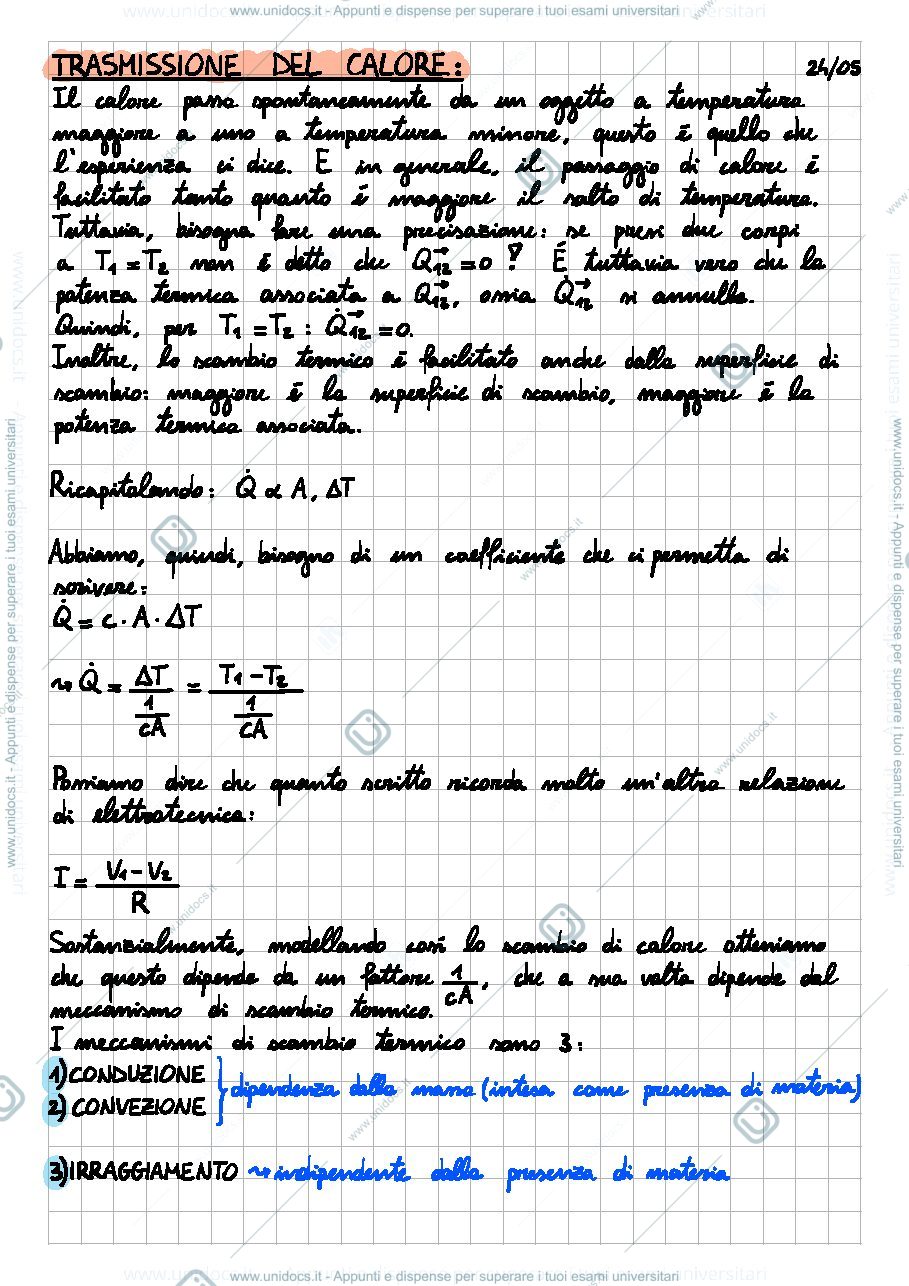 www.unidocs.it - Appunti e dispense per superare i tuoi esami universitari
TRASMISSIONE DEL CALORE: 24/05
Il calore passa spontaneamente da un oggetto a temperatura
maggiore a uno a temperatura minore, questo è quello che
l'esperienza ci dice. E in generale, il passaggio di calore è
facilitato tanto quanto è maggiore il salto di temperatura.
Tuttavia, bisogna fare una precisazione: se presi due corpi
a T₁ = T₂ non è detto che Q₁₂→ = 0 ! È tuttavia vero che la
potenza termica associata a Q₁₂→, ossia Q̇₁₂→ si annulla.
Quindi, per T₁ = T₂ : Q̇₁₂→ = 0.
Inoltre, lo scambio termico è facilitato anche dalla superficie di
scambio: maggiore è la superficie di scambio, maggiore è la
potenza termica associata.
Ricapitolando: Q̇ ∝ A, ΔT
Abbiamo, quindi, bisogno di un coefficiente che ci permetta di
scrivere:
Q̇ = c · A · ΔT
⤳ Q̇ = ΔT / (1/cA) = (T₁ - T₂) / (1/cA)
Possiamo dire che quanto scritto ricorda molto un'altra relazione
di elettrotecnica:
I = (V₁ - V₂) / R
Sostanzialmente, modellando così lo scambio di calore otteniamo
che questo dipende da un fattore 1/cA, che a sua volta dipende dal
meccanismo di scambio termico.
I meccanismi di scambio termico sono 3:
1) CONDUZIONE
2) CONVEZIONE
} dipendenza dalla massa (intesa come presenza di materia)
3) IRRAGGIAMENTO ⤳ indipendente dalla presenza di materia
www.unidocs.it - Appunti e dispense per superare i tuoi esami universitari